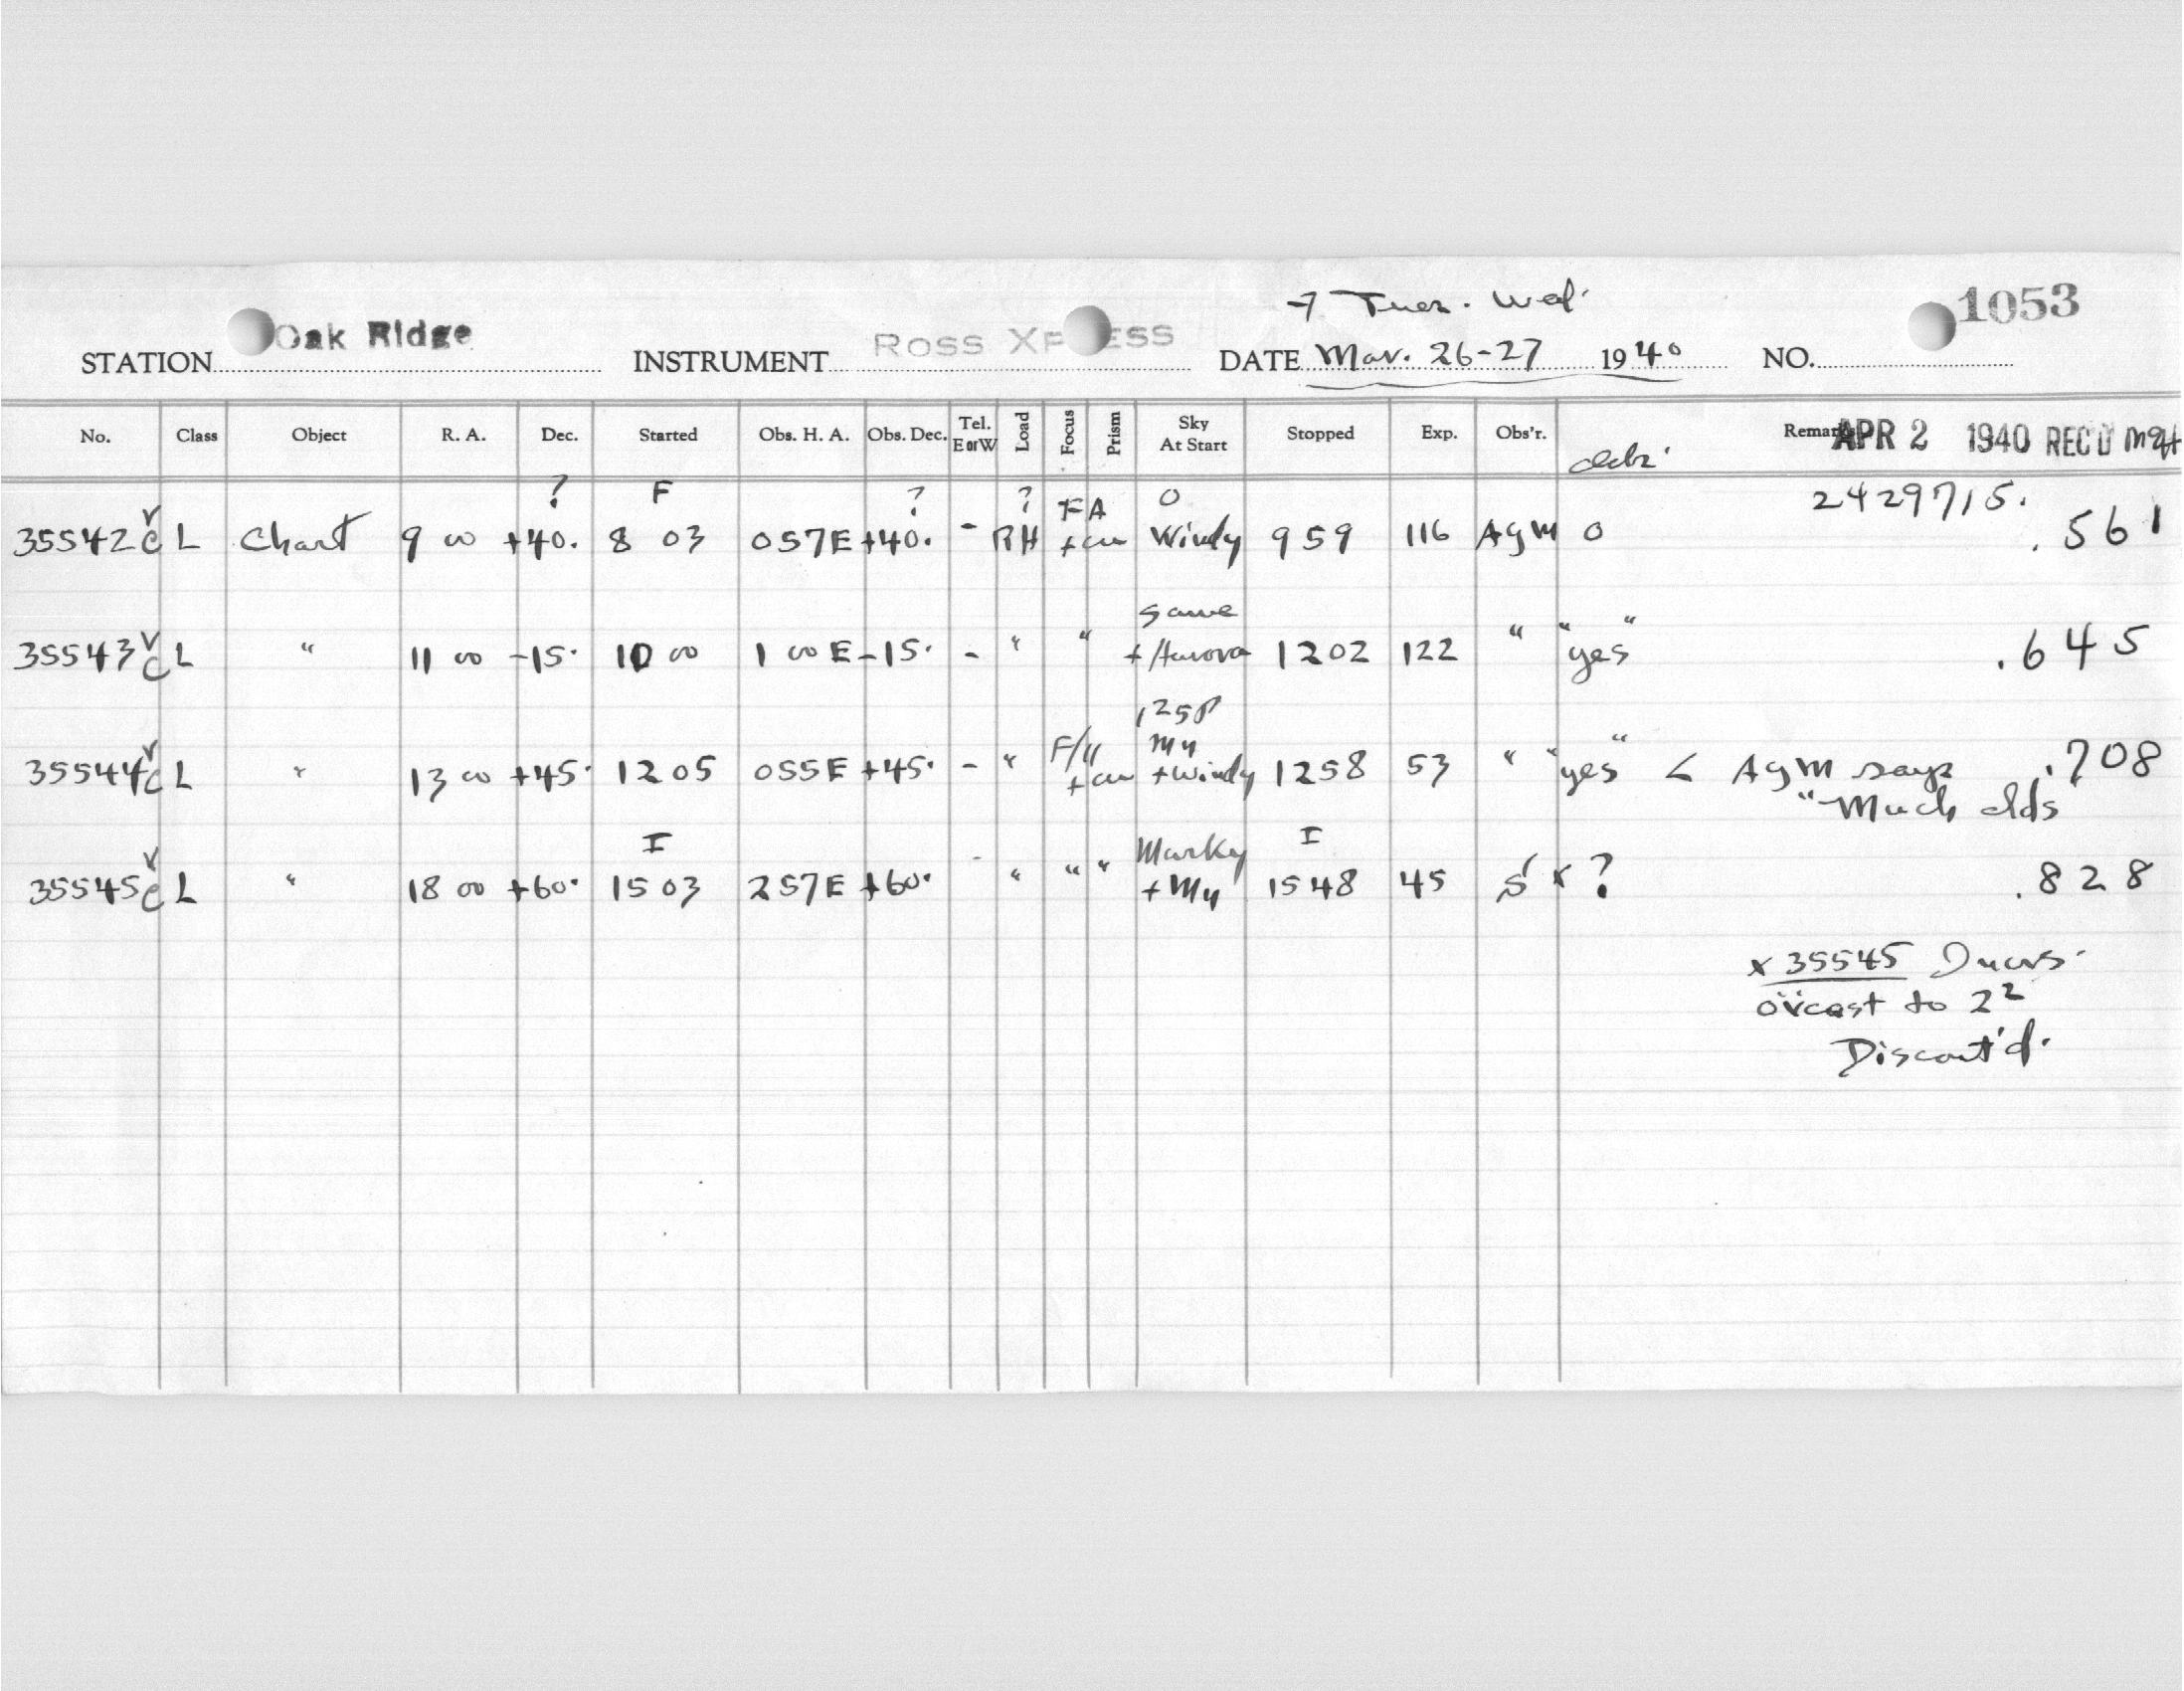 → Tues. Wed.
STATION Oak Ridge INSTRUMENT ROSS XP ESS DATE Mar. 26-27 1940 NO. 1053
No. Class Object R. A. Dec. Started Obs. H. A. Obs. Dec. Tel. E or W Load Focus Prism Sky At Start Stopped Exp. Obs'r. Remarks APR 2 1940 REC'D
? F ? ? FA 0 2429715.
35542 C L Chart 9 00 +40. 8 03 057E +40. - RH Windy 9 59 116 AgM 0 .561
same
35543 C L " 11 00 -15. 10 00 1 00 E -15. - " " + Aurora 12 02 122 " "yes" .645
1258
My
35544 C L " 13 00 +45. 12 05 055E +45. - " F/4 + windy 12 58 53 " "yes" < AgM says .708
"Much clds"
I Murky I
35545 C L " 18 00 +60. 15 03 257E +60. - " " " + My 15 48 45 S x ? .828
x 35545
ov'cast to 2²
Discont'd.